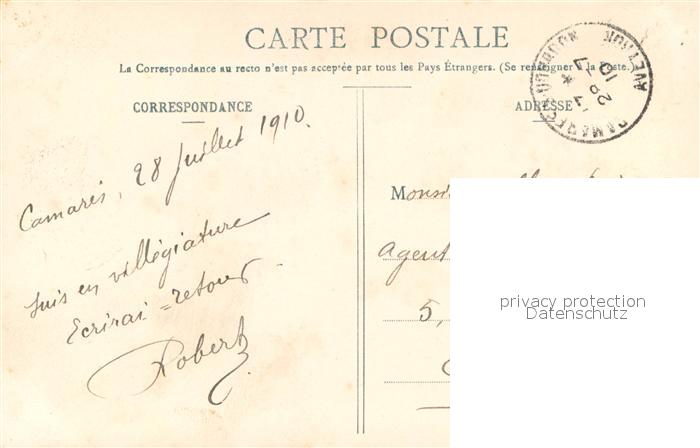 CARTE POSTALE
La Correspondance au recto n'est pas acceptée par tous les Pays Étrangers. (Se renseigner à la Poste.)
CORRESPONDANCE
Camarès, 28 Juillet 1910.
suis en villégiature
Ecrirai = retour
Robert
ADRESSE
AVEYRON
Monsie
Agent
5,
privacy protection
Datenschutz